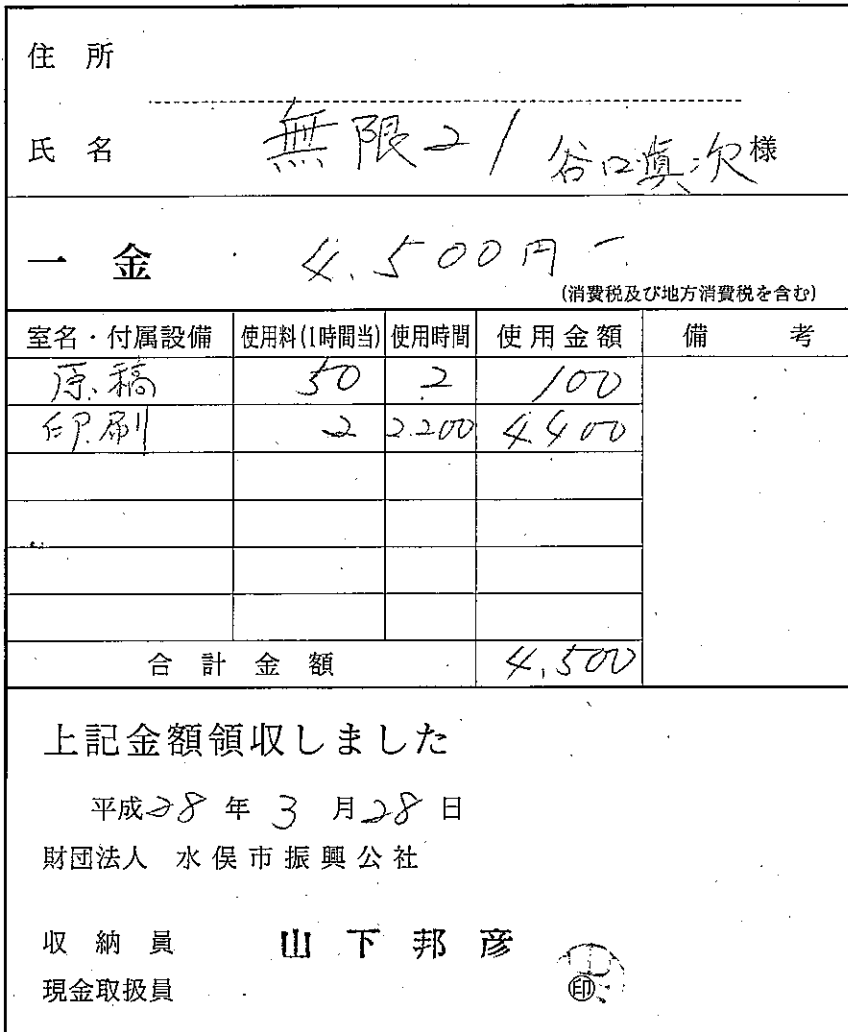 住 所
氏 名 無限21 谷口眞次 様
一 金 4.500円-
(消費税及び地方消費税を含む)
室名・付属設備 使用料(1時間当) 使用時間 使用金額 備 考
原稿 50 2 100
印刷 2 2.200 4400
合 計 金 額 4,500
上記金額領収しました
平成28年 3月28日
財団法人 水俣市振興公社
収 納 員 山下邦彦
現金取扱員 ㊞